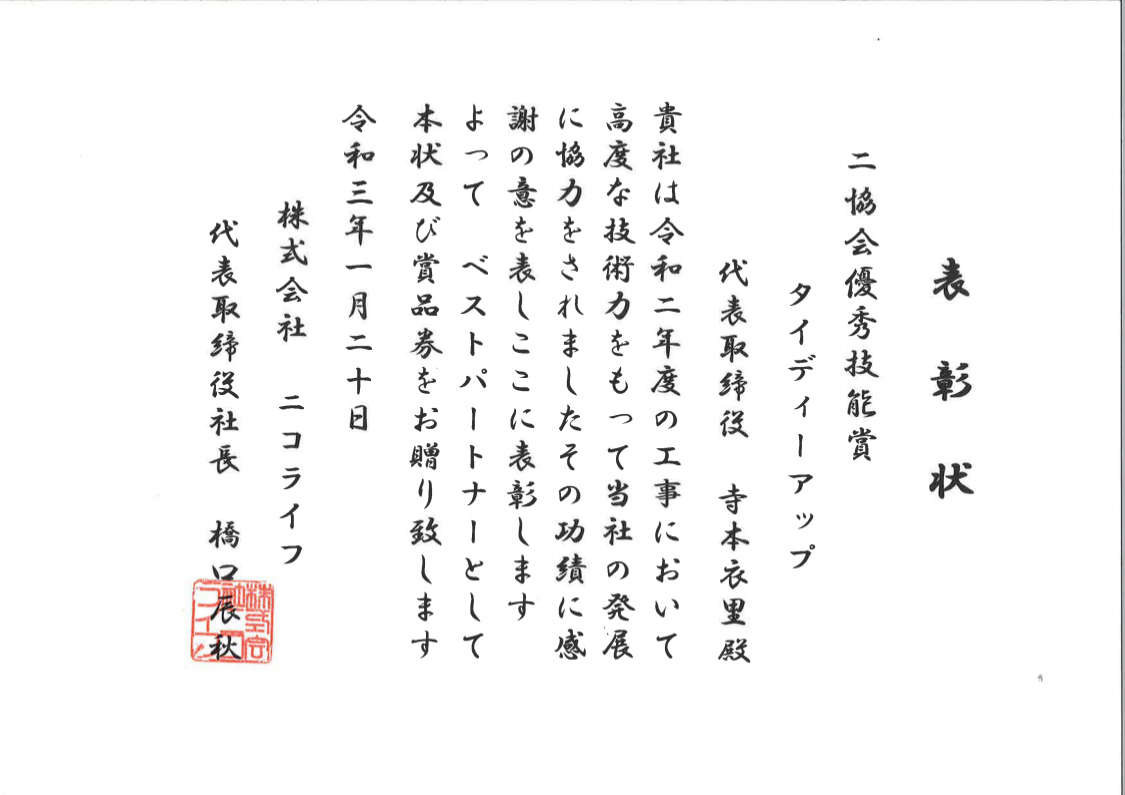 表彰状
二協会優秀技能賞
タイディーアップ
代表取締役　寺本衣里殿
貴社は令和二年度の工事において
高度な技術力をもって当社の発展
に協力をされましたその功績に感
謝の意を表しここに表彰します
よって　ベストパートナーとして
本状及び賞品券をお贈り致します
令和三年一月二十日
株式会社　ニコライフ
代表取締役社長　橋口辰秋